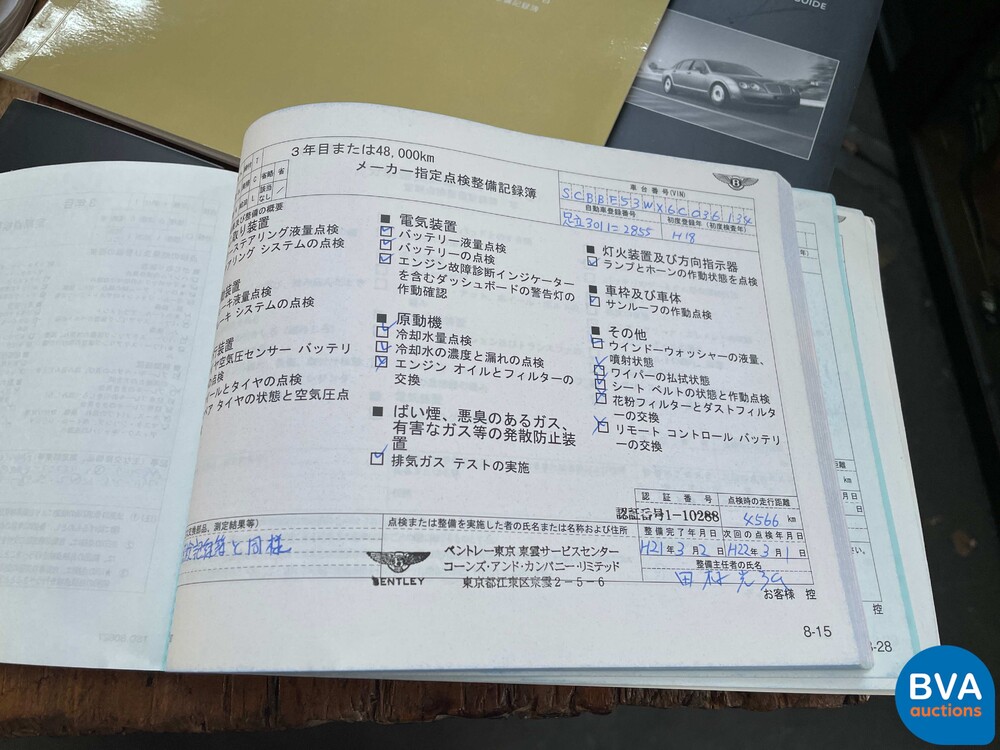 GUIDE
3年目または48,000km
メーカー指定点検整備記録簿
車台番号(VIN)
SCBBE53WX6C036134
自動車登録番号
初度登録年(初度検査年)
足立301に2855
H18
省略
省
該当なし
/
び整備の概要
ステアリング液量点検
アリング システムの点検
装置
ーキ液量点検
ーキ システムの点検
装置
空気圧センサー バッテリ
点検
ールとタイヤの点検
ア タイヤの状態と空気圧点
■ 電気装置
バッテリー液量点検
バッテリーの点検
エンジン故障診断インジケーターを含むダッシュボードの警告灯の作動確認
■ 原動機
冷却水量点検
冷却水の濃度と漏れの点検
エンジン オイルとフィルターの交換
■ ばい煙、悪臭のあるガス、有害なガス等の発散防止装置
排気ガス テストの実施
■ 灯火装置及び方向指示器
ランプとホーンの作動状態を点検
■ 車枠及び車体
サンルーフの作動点検
■ その他
ウインドーウォッシャーの液量、噴射状態
ワイパーの払拭状態
シート ベルトの状態と作動点検
花粉フィルターとダストフィルターの交換
リモート コントロール バッテリーの交換
認証番号
点検時の走行距離
認証番号1-10288
4566 km
交換部品、測定結果等)
点検または整備を実施した者の氏名または名称および住所
整備完了年月日
次回の点検年月日
H21年3月2日
H22年3月1日
と同様
BENTLEY
ベントレー東京 東雲サービスセンター
コーンズ・アンド・カンパニー・リミテッド
東京都江東区東雲2-5-6
整備主任者の氏名
お客様 控
8-15
控
8-28
BVA
auctions